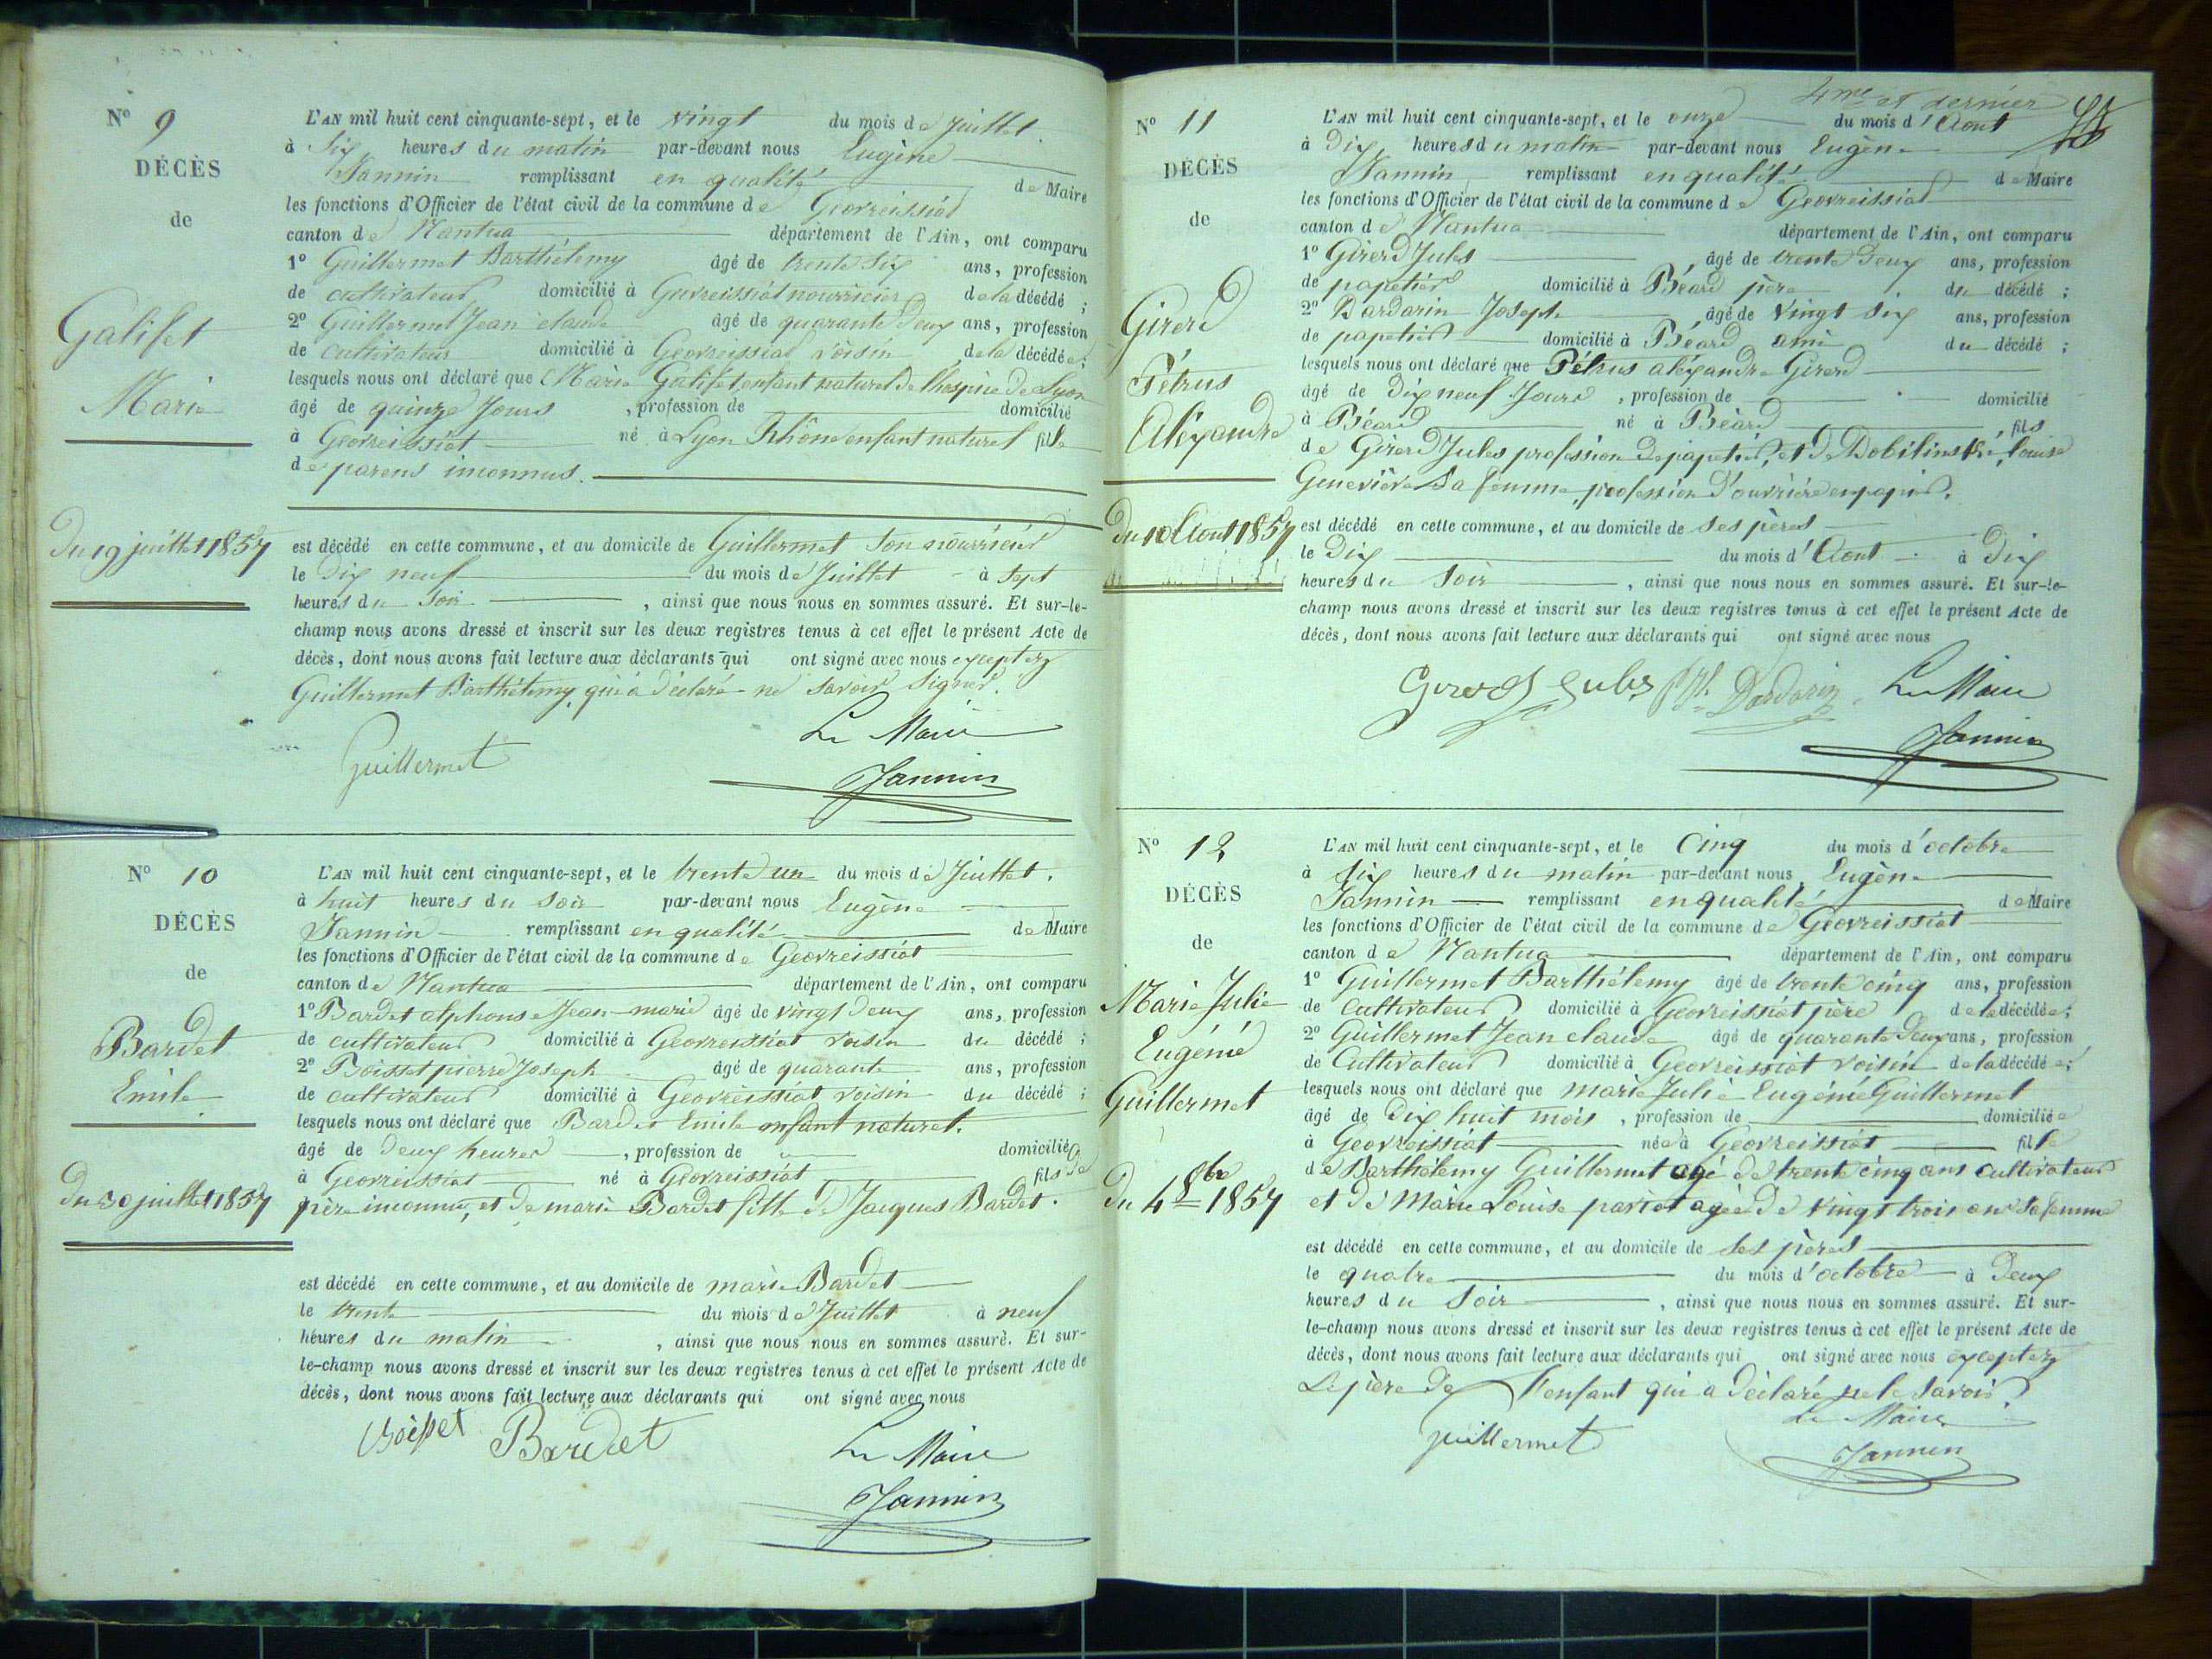 N° 9
DÉCÈS
de
Galifet
Marie
Du 19 juillet 1857
L'AN mil huit cent cinquante-sept, et le vingt du mois de Juillet.
à six heures du matin par-devant nous Eugène
Jannin remplissant en qualité de Maire
les fonctions d'Officier de l'état civil de la commune de Géovreissiat
canton de Nantua département de l'Ain, ont comparu
1° Guillermet Barthélemy âgé de trente six ans, profession
de cultivateur domicilié à Géovreissiat nourricier de la décédé ;
2° Guillermet Jean claude âgé de quarante deux ans, profession
de cultivateur domicilié à Géovreissiat voisin de la décédée ;
lesquels nous ont déclaré que Marie Galifet, enfant naturel de l'hospice de Lyon
âgé de quinze Jours , profession de domicilié
à Géovreissiat né à Lyon Rhône enfant naturel fille
de parens inconnus.
est décédé en cette commune, et au domicile de Guillermet son nourricier
le dix neuf du mois de Juillet à sept
heures du soir , ainsi que nous nous en sommes assuré. Et sur-le-
champ nous avons dressé et inscrit sur les deux registres tenus à cet effet le présent Acte de
décès, dont nous avons fait lecture aux déclarants qui ont signé avec nous exceptez
Guillermet Barthélemy, qui a déclaré ne savoir signer.
Guillermet
Le Maire
Jannin
N° 10
DÉCÈS
de
Bardet
Emile
Du 30 juillet 1857
L'AN mil huit cent cinquante-sept, et le trente un du mois de Juillet.
à huit heures du soir par-devant nous Eugène
Jannin remplissant en qualité de Maire
les fonctions d'Officier de l'état civil de la commune de Géovreissiat
canton de Nantua département de l'Ain, ont comparu
1° Bardet alphonse Jean-marie âgé de vingt deux ans, profession
de cultivateur domicilié à Géovreissiat voisin du décédé ;
2° Boisset pierre Joseph âgé de quarante ans, profession
de cultivateur domicilié à Géovreissiat voisin du décédé ;
lesquels nous ont déclaré que Bardet Emile enfant naturel.
âgé de deux heures , profession de domicilié
à Géovreissiat né à Géovreissiat fils de
père inconnu, et de marie Bardet fille de Jacques Bardet.
est décédé en cette commune, et au domicile de marie Bardet
le trente du mois de Juillet à neuf
heures du matin , ainsi que nous nous en sommes assuré. Et sur-
le-champ nous avons dressé et inscrit sur les deux registres tenus à cet effet le présent Acte de
décès, dont nous avons fait lecture aux déclarants qui ont signé avec nous
Boisset Bardet
Le Maire
Jannin
4me et dernier
N° 11
DÉCÈS
de
Girerd
Pétrus
Aléxandre
Du 10 Aout 1857
L'AN mil huit cent cinquante-sept, et le onze du mois d'Aout
à Dix heures du matin par-devant nous Eugène
Jannin remplissant en qualité de Maire
les fonctions d'Officier de l'état civil de la commune de Géovreissiat
canton de Nantua département de l'Ain, ont comparu
1° Girerd Jules âgé de trente deux ans, profession
de papetier domicilié à Béard père du décédé ;
2° Dardarin Joseph âgé de vingt six ans, profession
de papetier domicilié à Béard ami du décédé ;
lesquels nous ont déclaré que Pétrus aléxandre Girerd
âgé de Dix neuf Jours , profession de domicilié
à Béard né à Béard fils
de Girerd Jules profession de papetier, et de Dobilinski, louise
Geneviève sa femme, profession d'ouvrière en papier.
est décédé en cette commune, et au domicile de ses pères
le Dix du mois d'Aout à Dix
heures du soir , ainsi que nous nous en sommes assuré. Et sur-le-
champ nous avons dressé et inscrit sur les deux registres tenus à cet effet le présent Acte de
décès, dont nous avons fait lecture aux déclarants qui ont signé avec nous
Girerd Jules Dardarin Le Maire
Jannin
N° 12
DÉCÈS
de
Marie Julie
Eugénie
Guillermet
Du 4 8bre 1857
L'AN mil huit cent cinquante-sept, et le Cinq du mois d'octobre
à six heures du matin par-devant nous Eugène
Jannin remplissant en qualité de Maire
les fonctions d'Officier de l'état civil de la commune de Géovreissiat
canton de Nantua département de l'Ain, ont comparu
1° Guillermet Barthélemy âgé de trente cinq ans, profession
de cultivateur domicilié à Géovreissiat père de la décédée ;
2° Guillermet Jean claude âgé de quarante deux ans, profession
de Cultivateur domicilié à Géovreissiat voisin de la décédée ;
lesquels nous ont déclaré que marie Julie Eugénie Guillermet
âgé de Dix huit mois , profession de domiciliée
à Géovreissiat née à Géovreissiat fille
de Barthélemy Guillermet agé de trente cinq ans cultivateur
et de Marie Louise pariet agée de vingt trois ans sa femme
est décédé en cette commune, et au domicile de ses pères
le quatre du mois d'octobre à Deux
heures du soir , ainsi que nous nous en sommes assuré. Et sur-
le-champ nous avons dressé et inscrit sur les deux registres tenus à cet effet le présent Acte de
décès, dont nous avons fait lecture aux déclarants qui ont signé avec nous exceptez
Le père de l'enfant qui a déclaré ne le savoir.
Guillermet
Le Maire
Jannin